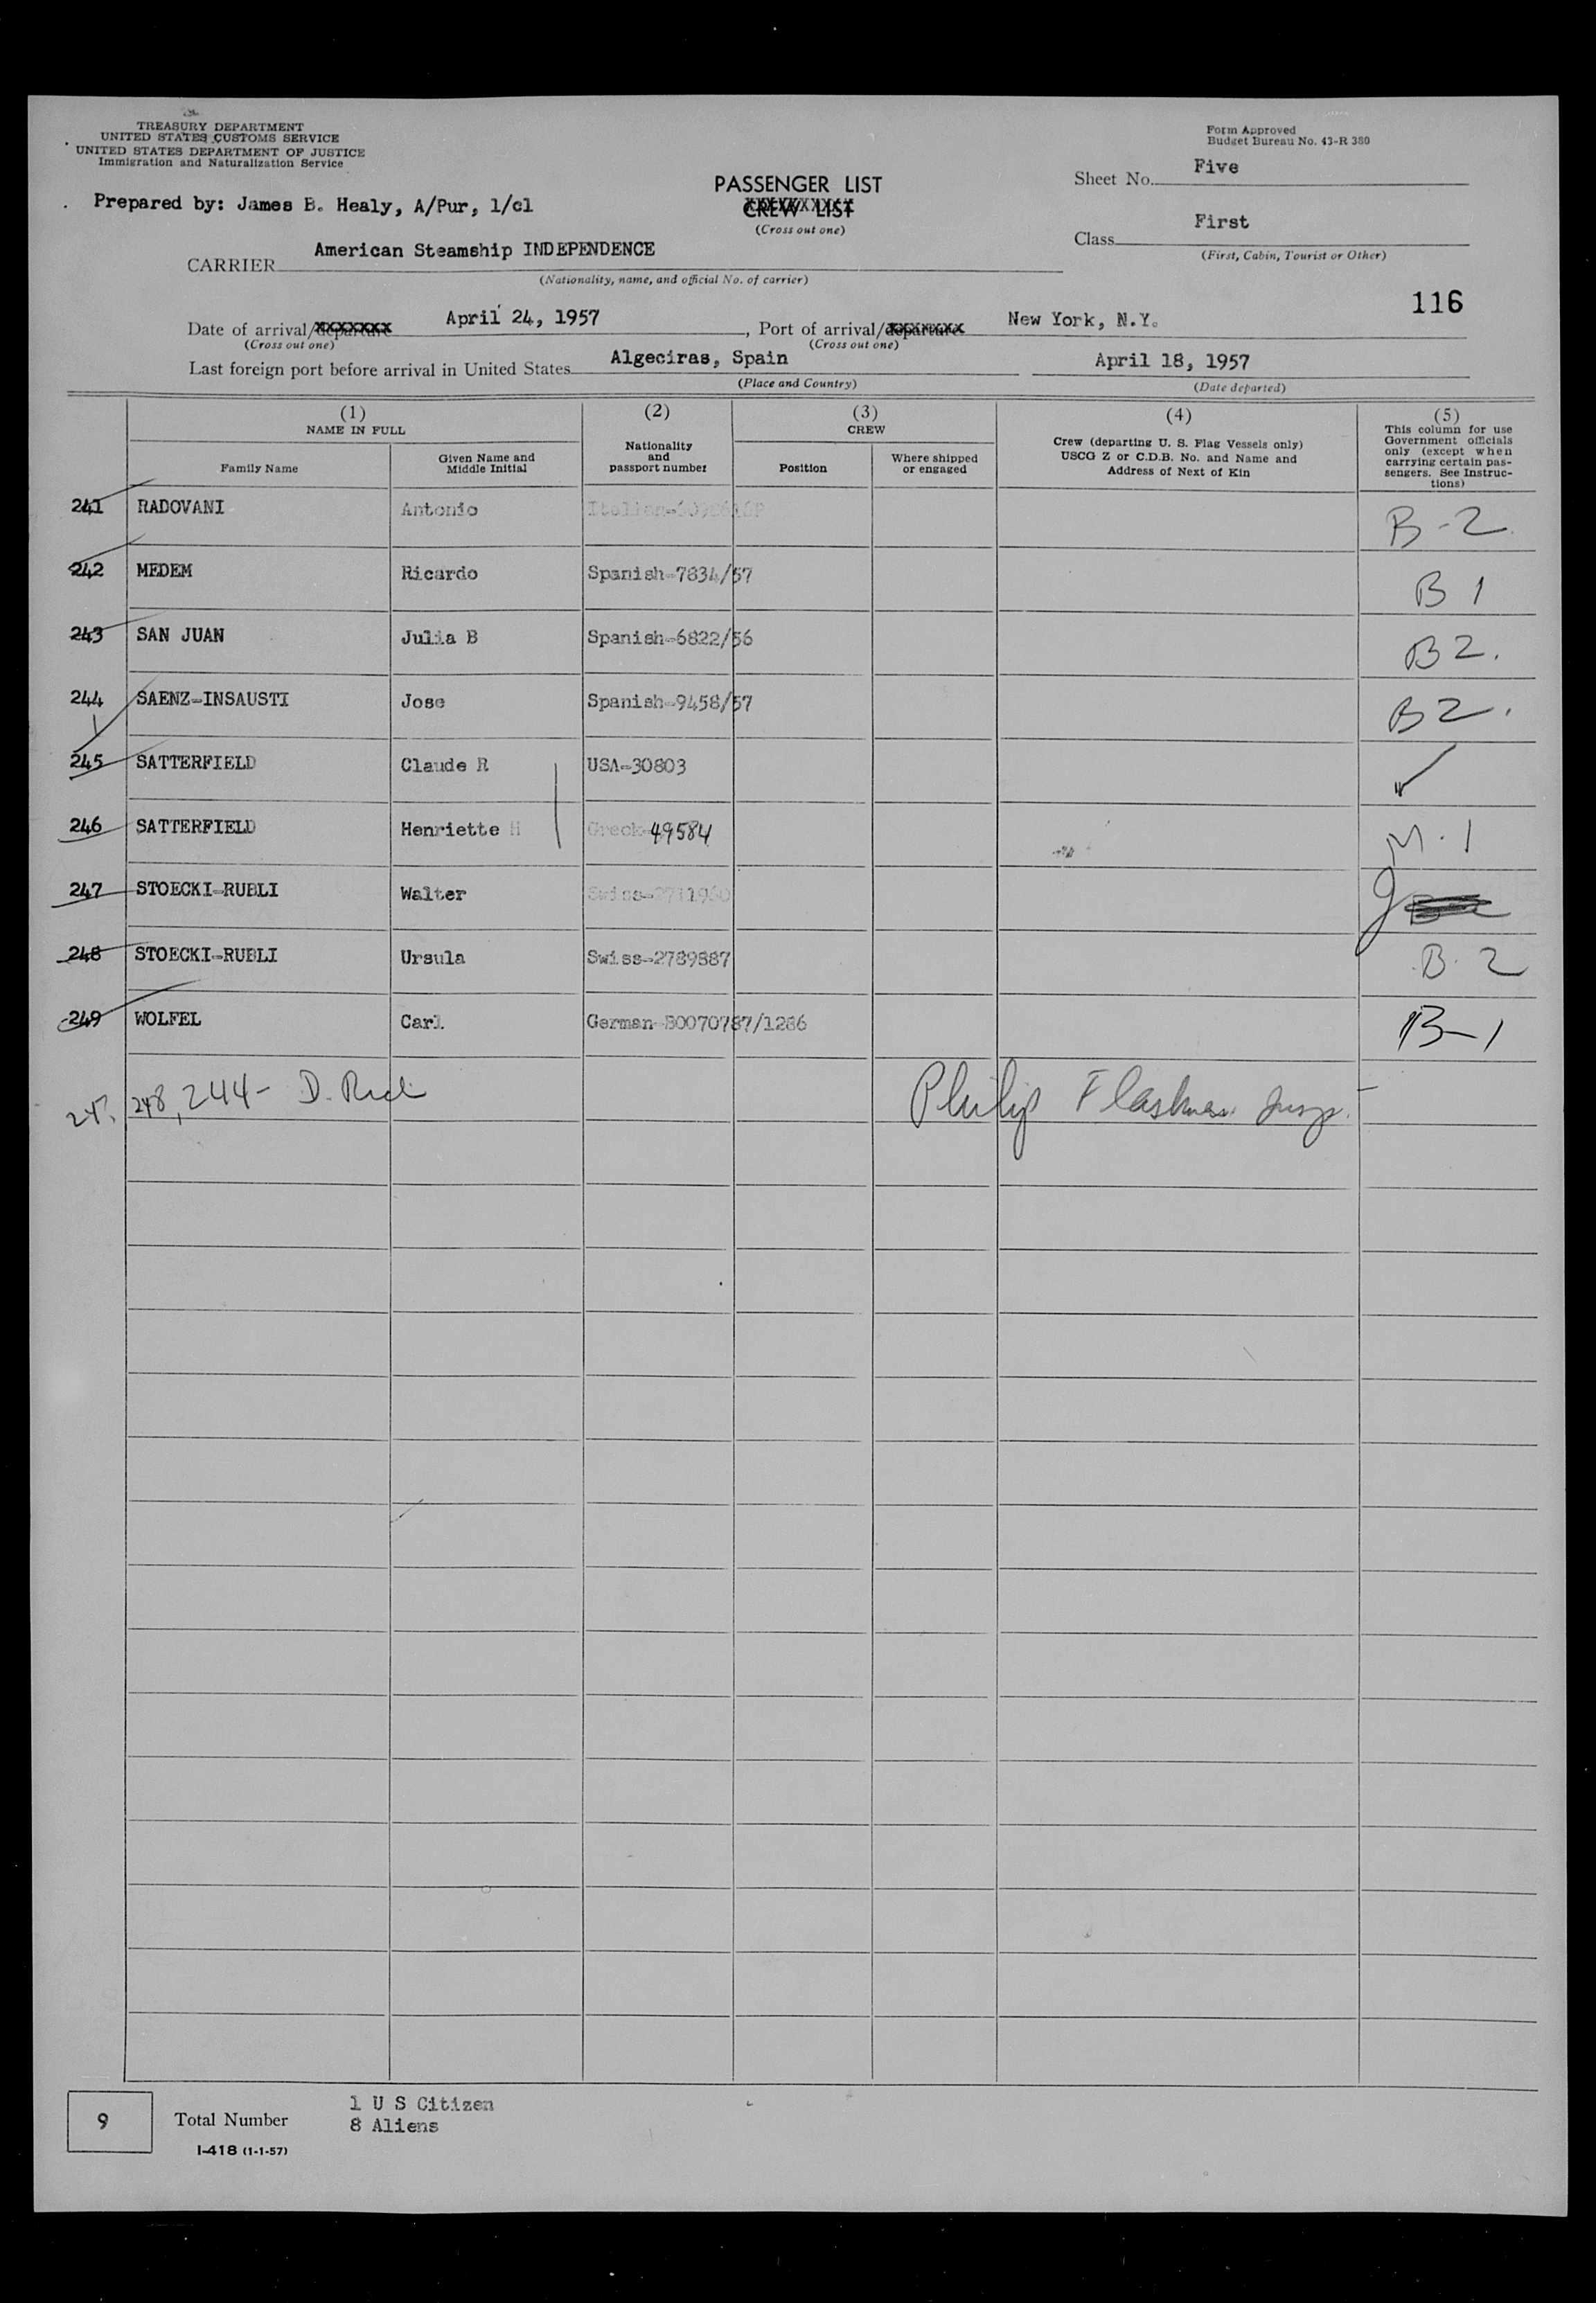 TREASURY DEPARTMENT
UNITED STATES CUSTOMS SERVICE
UNITED STATES DEPARTMENT OF JUSTICE
Immigration and Naturalization Service
Form Approved
Budget Bureau No. 43-R 380
Sheet No. Five
Prepared by: James B. Healy, A/Pur, 1/cl
PASSENGER LIST
CREW LIST
(Cross out one)
Class First
(First, Cabin, Tourist or Other)
CARRIER American Steamship INDEPENDENCE
(Nationality, name, and official No. of carrier)
116
Date of arrival/departure April 24, 1957, Port of arrival/departure New York, N.Y.
(Cross out one) (Cross out one)
Last foreign port before arrival in United States Algeciras, Spain April 18, 1957
(Place and Country) (Date departed)
(1) (2) (3) (4) (5)
NAME IN FULL
Family Name
Given Name and
Middle Initial
Nationality
and
passport number
CREW
Position
Where shipped
or engaged
Crew (departing U. S. Flag Vessels only)
USCG Z or C.D.B. No. and Name and
Address of Next of Kin
This column for use
Government officials
only (except when
carrying certain pas-
sengers. See Instruc-
tions)
241 RADOVANI Antonio Italian B-2
242 MEDEM Ricardo Spanish-7834/57 B 1
243 SAN JUAN Julia B Spanish-6822/56 B 2.
244 SAENZ-INSAUSTI Jose Spanish-9458/57 B 2.
245 SATTERFIELD Claude R USA-30803
246 SATTERFIELD Henriette H Greek-49584 M.1
247 STOECKI-RUBLI Walter Swiss
248 STOECKI-RUBLI Ursula Swiss-2789887 B.2
249 WOLFEL Carl German-B0070787/1286 B-1
248, 244- D. Philip Insp.
9 Total Number
1 U S Citizen
8 Aliens
I-418 (1-1-57)